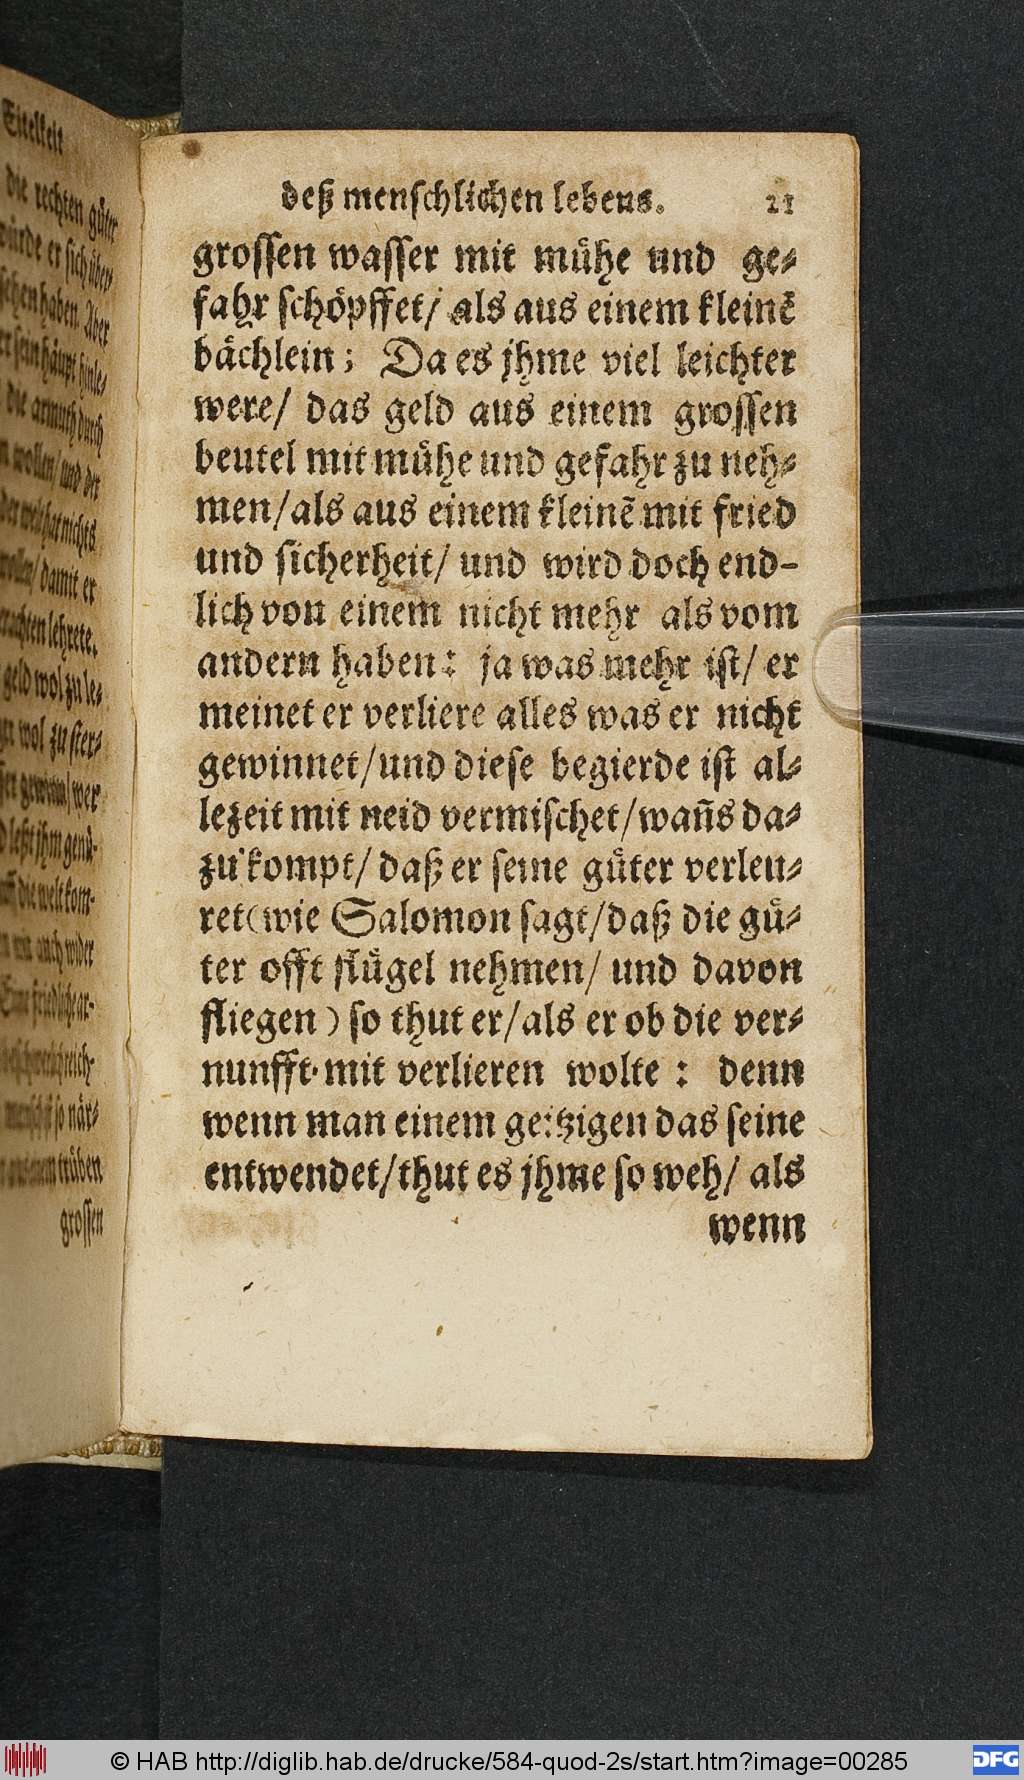 Eitelkeit
die rechten güter
würde er sich
haben. Aber
sein häupt hinle-
die armuth durch
wollen/ und der
hat nichts
damit er
lehrete.
geld wol zu le-
wol zu ster-
gewinn/ wer
leßt jhm genü-
die welt kom-
auch wider
Eine friedliche ar-
reich-
so när-
trüben
grossen
deß menschlichen lebens. 21
grossen wasser mit mühe und ge-
fahr schöpffet/ als aus einem kleinẽ
bächlein; Da es jhme viel leichter
were/ das geld aus einem grossen
beutel mit mühe und gefahr zu neh-
men/als aus einem kleinẽ mit fried
und sicherheit/ und wird doch end-
lich von einem nicht mehr als vom
andern haben: ja was mehr ist/ er
meinet er verliere alles was er nicht
gewinnet/und diese begierde ist al-
lezeit mit neid vermischet/wañs da-
zu kompt/ daß er seine güter verleu-
ret(wie Salomon sagt/daß die gü-
ter offt flügel nehmen/ und davon
fliegen) so thut er/als er ob die ver-
nunfft mit verlieren wolte: denn
wenn man einem geitzigen das seine
entwendet/thut es jhme so weh/ als
wenn
© HAB http://diglib.hab.de/drucke/584-quod-2s/start.htm?image=00285
DFG